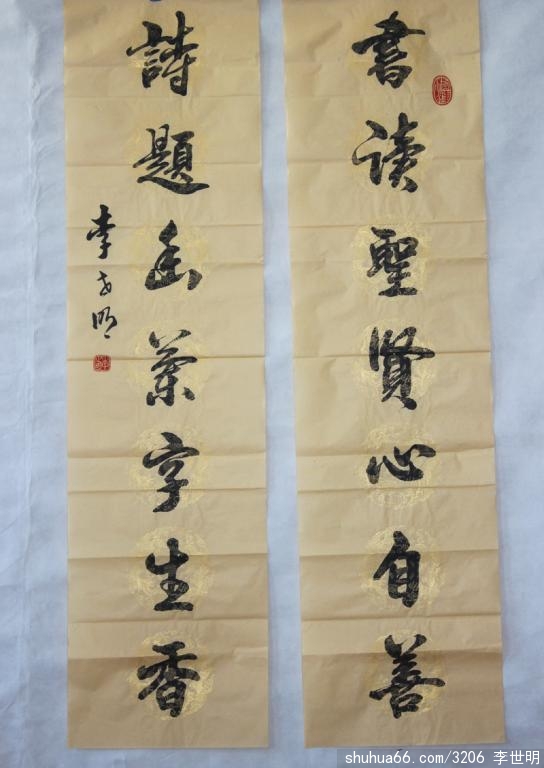 書读聖賢心自善
詩題幽蘭字生香
李世明
shuhua66.com/3206 李世明